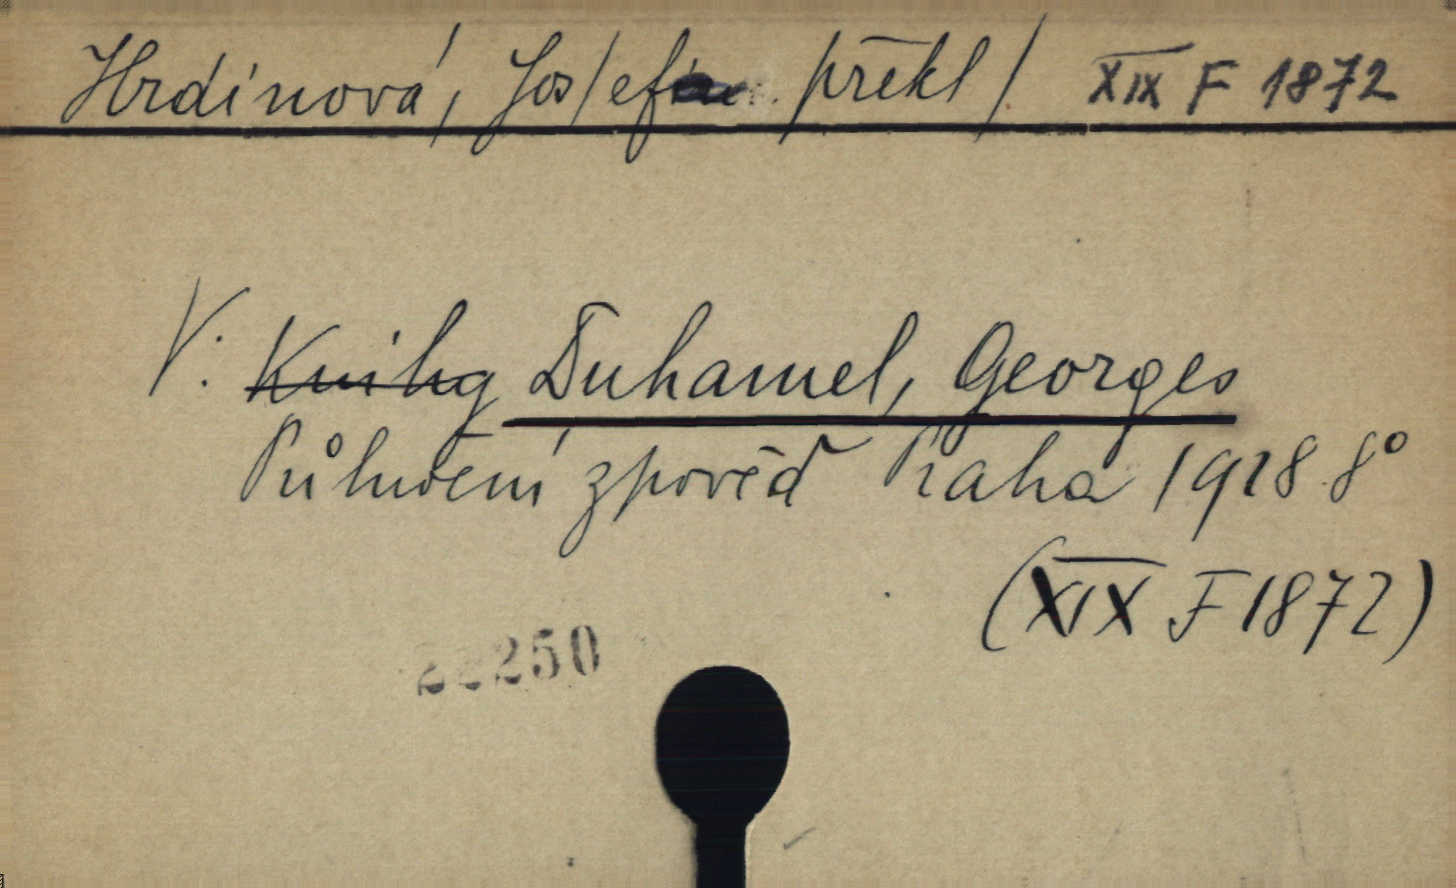 Hrdinová, Jos/efa /překl/ XIX F 1872
V: Knihy Duhamel, Georges
Půlnoční zpověď Praha 1928 8°
(XIX F 1872)
22250